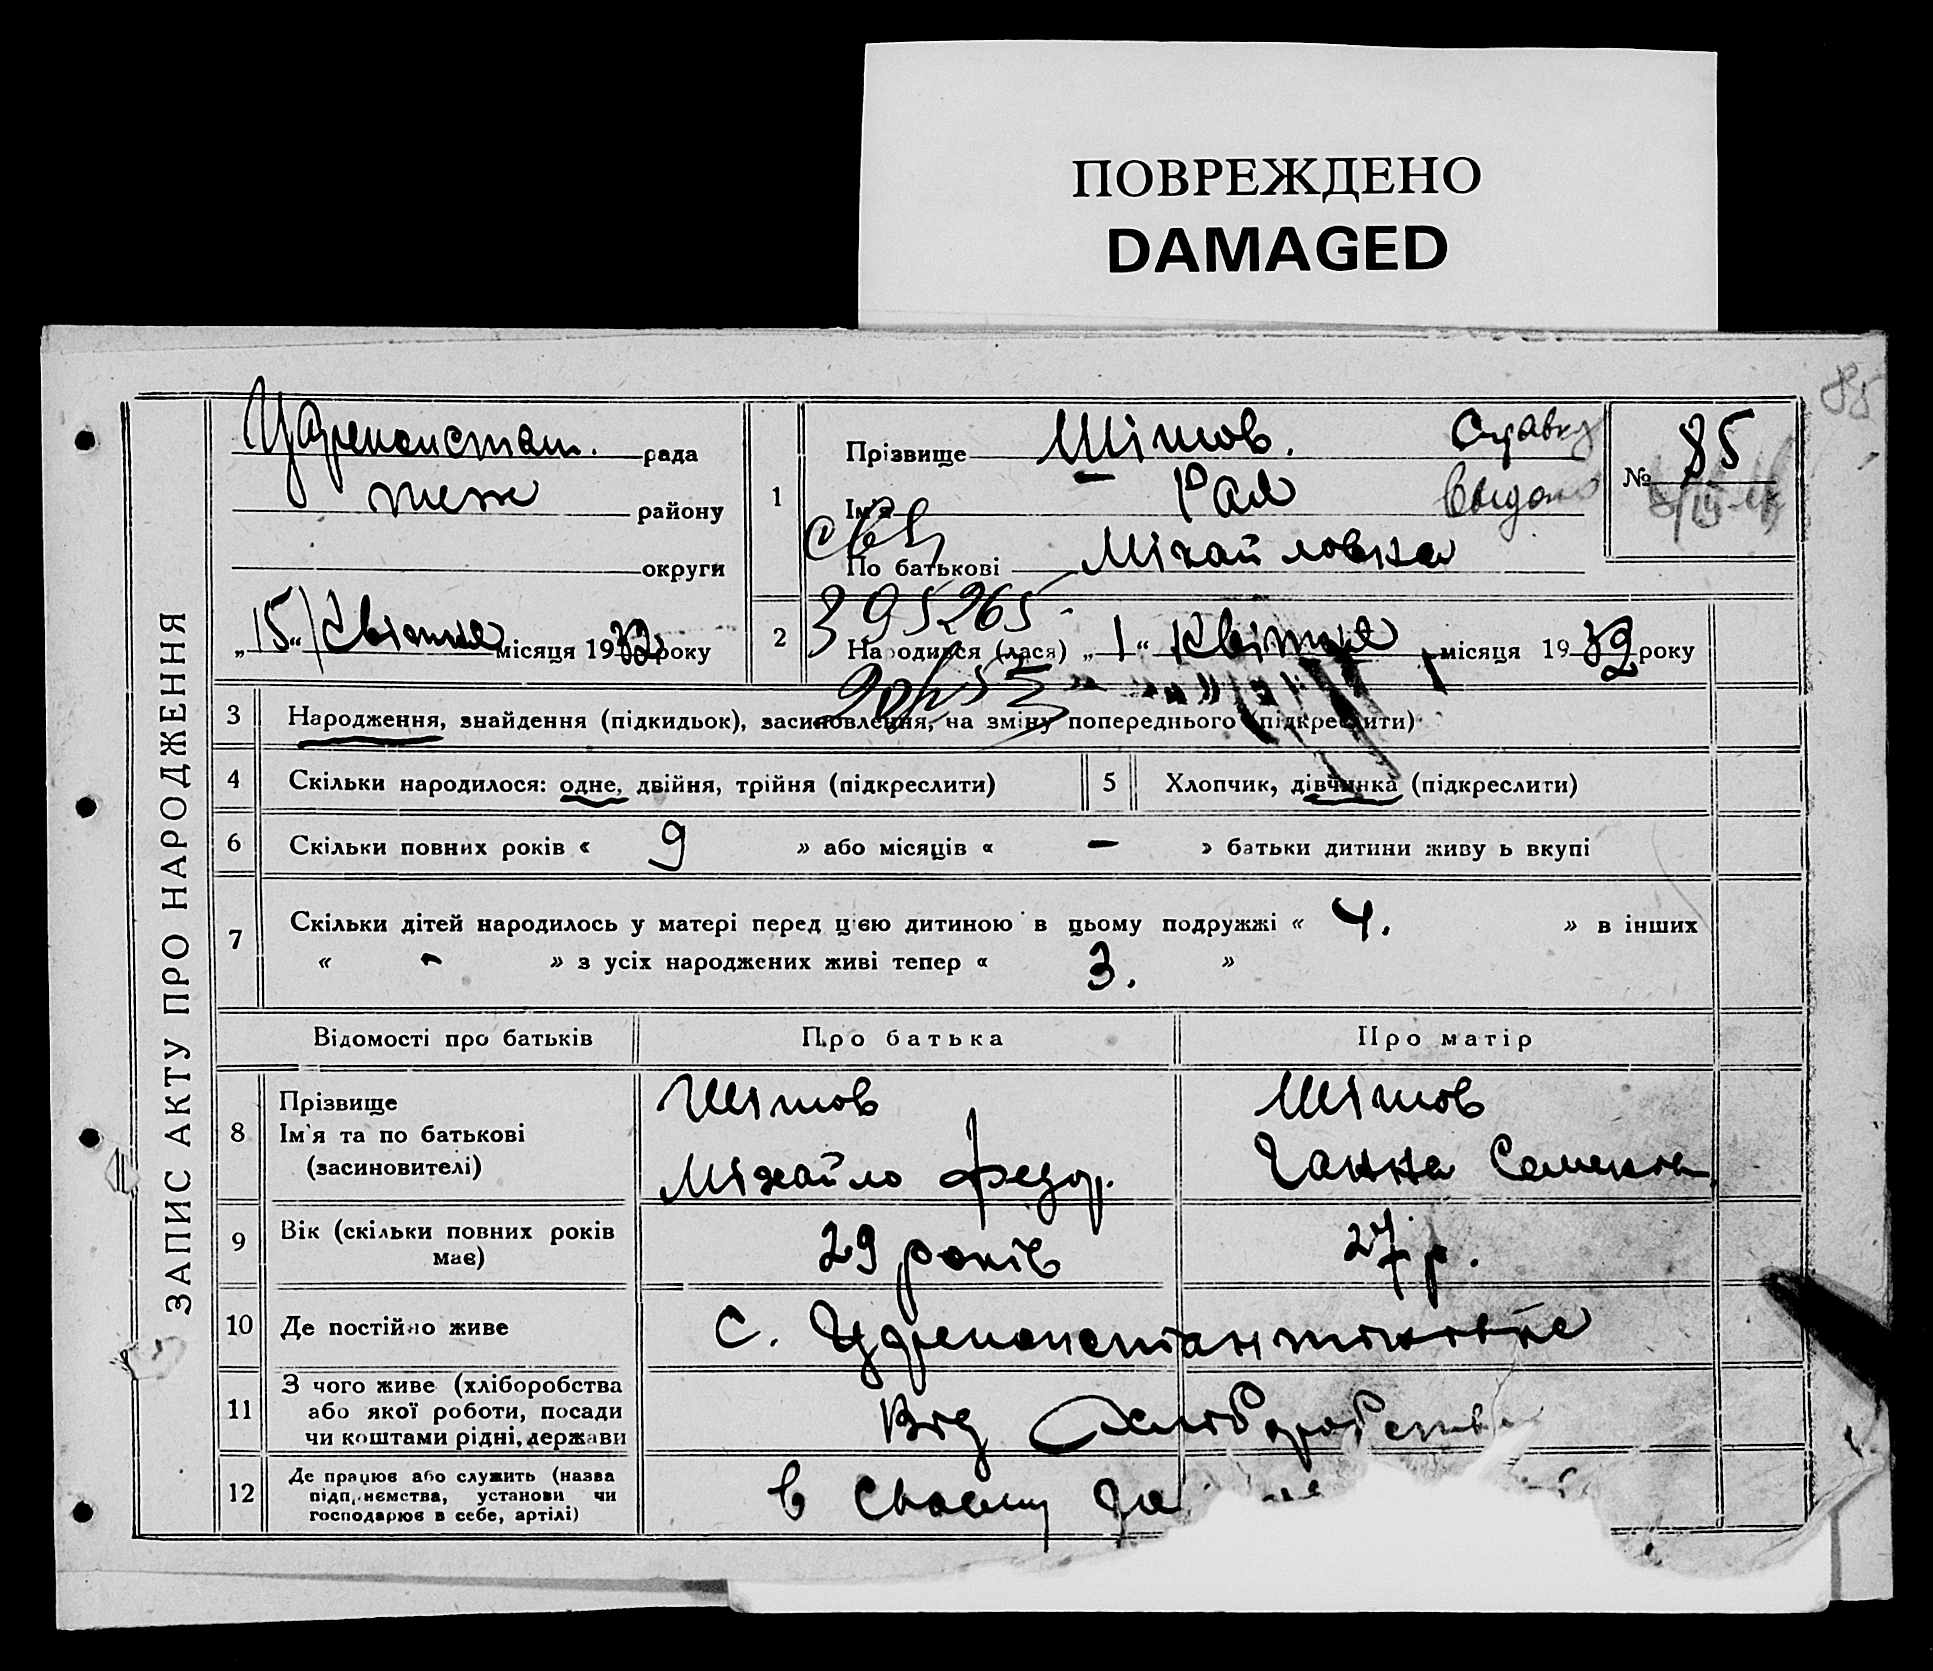 ПОВРЕЖДЕНО
DAMAGED
85
ЗАПИС АКТУ ПРО НАРОДЖЕННЯ
рада
теж району
округи
„15“ Квітня місяця 1932 року
1
Прізвище Шітов. Справку
Ім'я Рая выдано
По батькові Міхайловна
№ 85
395265
2
Народився (лася) „1“ Квітня місяця 1932 року
3 Народження, знайдення (підкидьок), засиновлення, на зміну попереднього (підкреслити)
4 Скільки народилося: одне, двійня, трійня (підкреслити) 5 Хлопчик, дівчинка (підкреслити)
6 Скільки повних років « 9 » або місяців « – » батьки дитини живуть вкупі
7 Скільки дітей народилось у матері перед цією дитиною в цьому подружжі « 4. » в інших
« - » з усіх народжених живі тепер « 3. »
Відомості про батьків Про батька Про матір
8 Прізвище Шітов Шітов
Ім'я та по батькові
(засиновителі) Міхайло Федор. Ганна Семенов.
9 Вік (скільки повних років має) 29 років 27 р.
10 Де постійно живе с.
11 З чого живе (хліборобства
або якої роботи, посади
чи коштами рідні, держави Від Хліборобства
12 Де працює або служить (назва
підприємства, установи чи
господарює в себе, артілі) в своєму